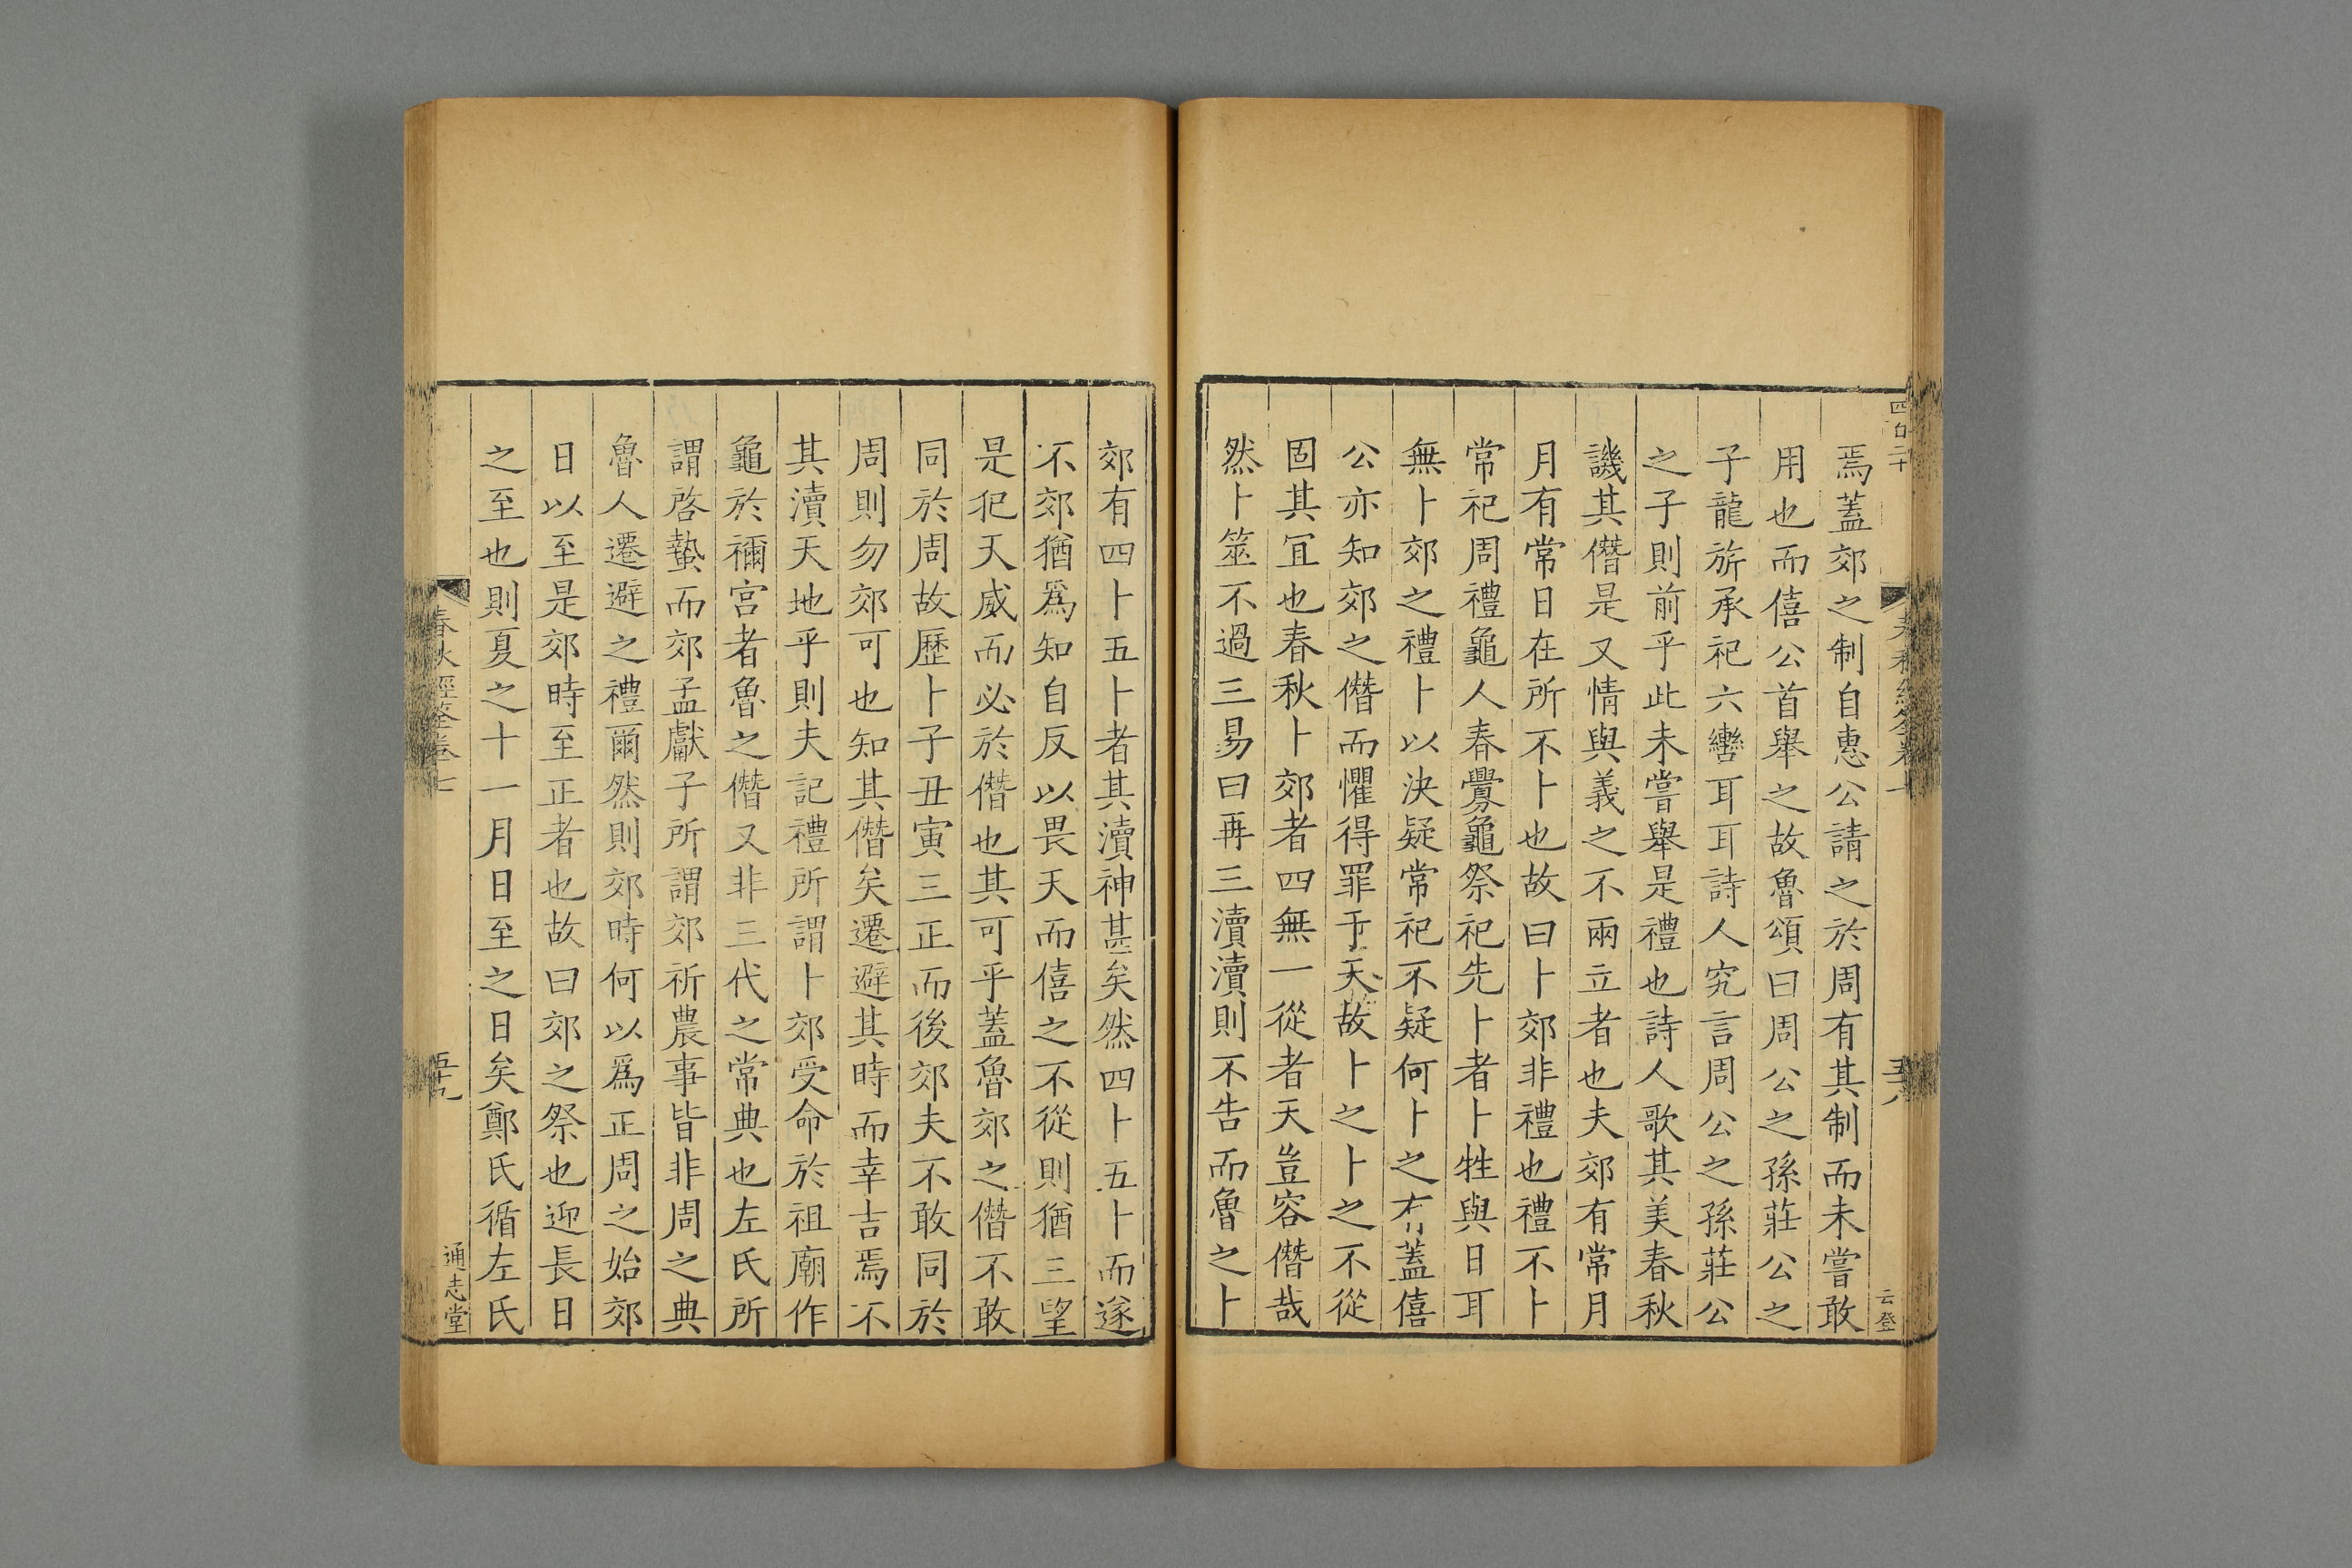 焉蓋郊之制自惠公請之於周有其制而未嘗敢
用也而僖公首舉之故魯頌曰周公之孫莊公之
子龍旂承祀六轡耳耳詩人究言周公之孫莊公
之子則前乎此未嘗舉是禮也詩人歌其美春秋
譏其僭是又情與義之不兩立者也夫郊有常月
月有常日在所不卜也故曰卜郊非禮也禮不卜
常祀周禮龜人春釁龜祭祀先卜者卜牲與日耳
無卜郊之禮卜以決疑常祀不疑何卜之有蓋僖
公亦知郊之僭而懼得罪于天故卜之卜之不從
固其宜也春秋卜郊者四無一從者天豈容僭哉
然卜筮不過三易曰再三瀆瀆則不告而魯之卜
云登
郊有四卜五卜者其瀆神甚矣然四卜五卜而遂
不郊猶爲知自反以畏天而僖之不從則猶三望
是犯天威而必於僭也其可乎蓋魯郊之僭不敢
同於周故歷卜子丑寅三正而後郊夫不敢同於
周則勿郊可也知其僭矣遷避其時而幸吉焉不
其瀆天地乎則夫記禮所謂卜郊受命於祖廟作
龜於禰宮者魯之僭又非三代之常典也左氏所
謂啓蟄而郊孟獻子所謂郊祈農事皆非周之典
魯人遷避之禮爾然則郊時何以爲正周之始郊
日以至是郊時至正者也故曰郊之祭也迎長日
之至也則夏之十一月日至之日矣鄭氏循左氏
春秋經筌卷七
五十九
通志堂